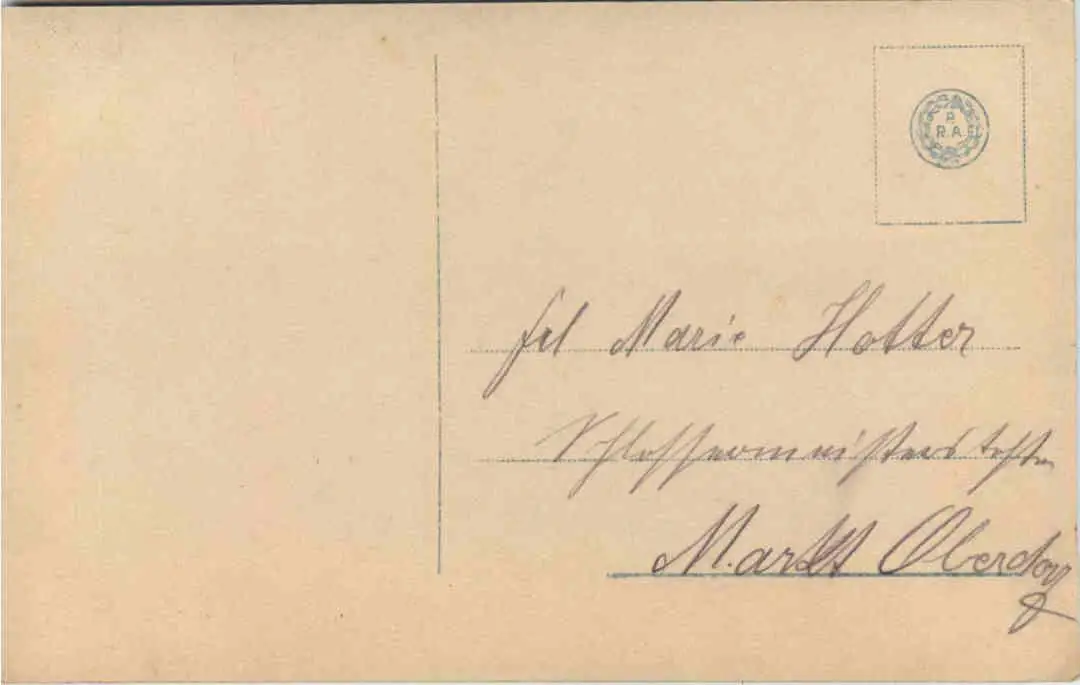 R
R.A.
Frl Marie Hotter
Schlossermeisterstochter
Markt Oberdorf